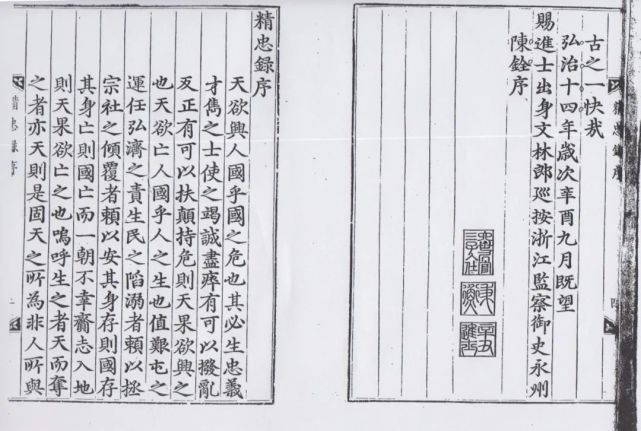 古之一快哉
弘治十四年歲次辛酉九月既望
賜進士出身文林郎廵按浙江監察御史永州
陳銓序
精忠録序
精忠錄序
天欲興人國乎國之危也其必生忠義
才雋之士使之竭誠盡瘁有可以撥亂
反正有可以扶顛持危則天果欲興之
也天欲亡人國乎人之生也值艱屯之
運任弘濟之責生民之陷溺者賴以拯
宗社之傾覆者賴以安其身存則國存
其身亡則國亡而一朝不幸齎志入地
則天果欲亡之也嗚呼生之者天而奪
之者亦天則是固天之所為非人所與
精忠錄序